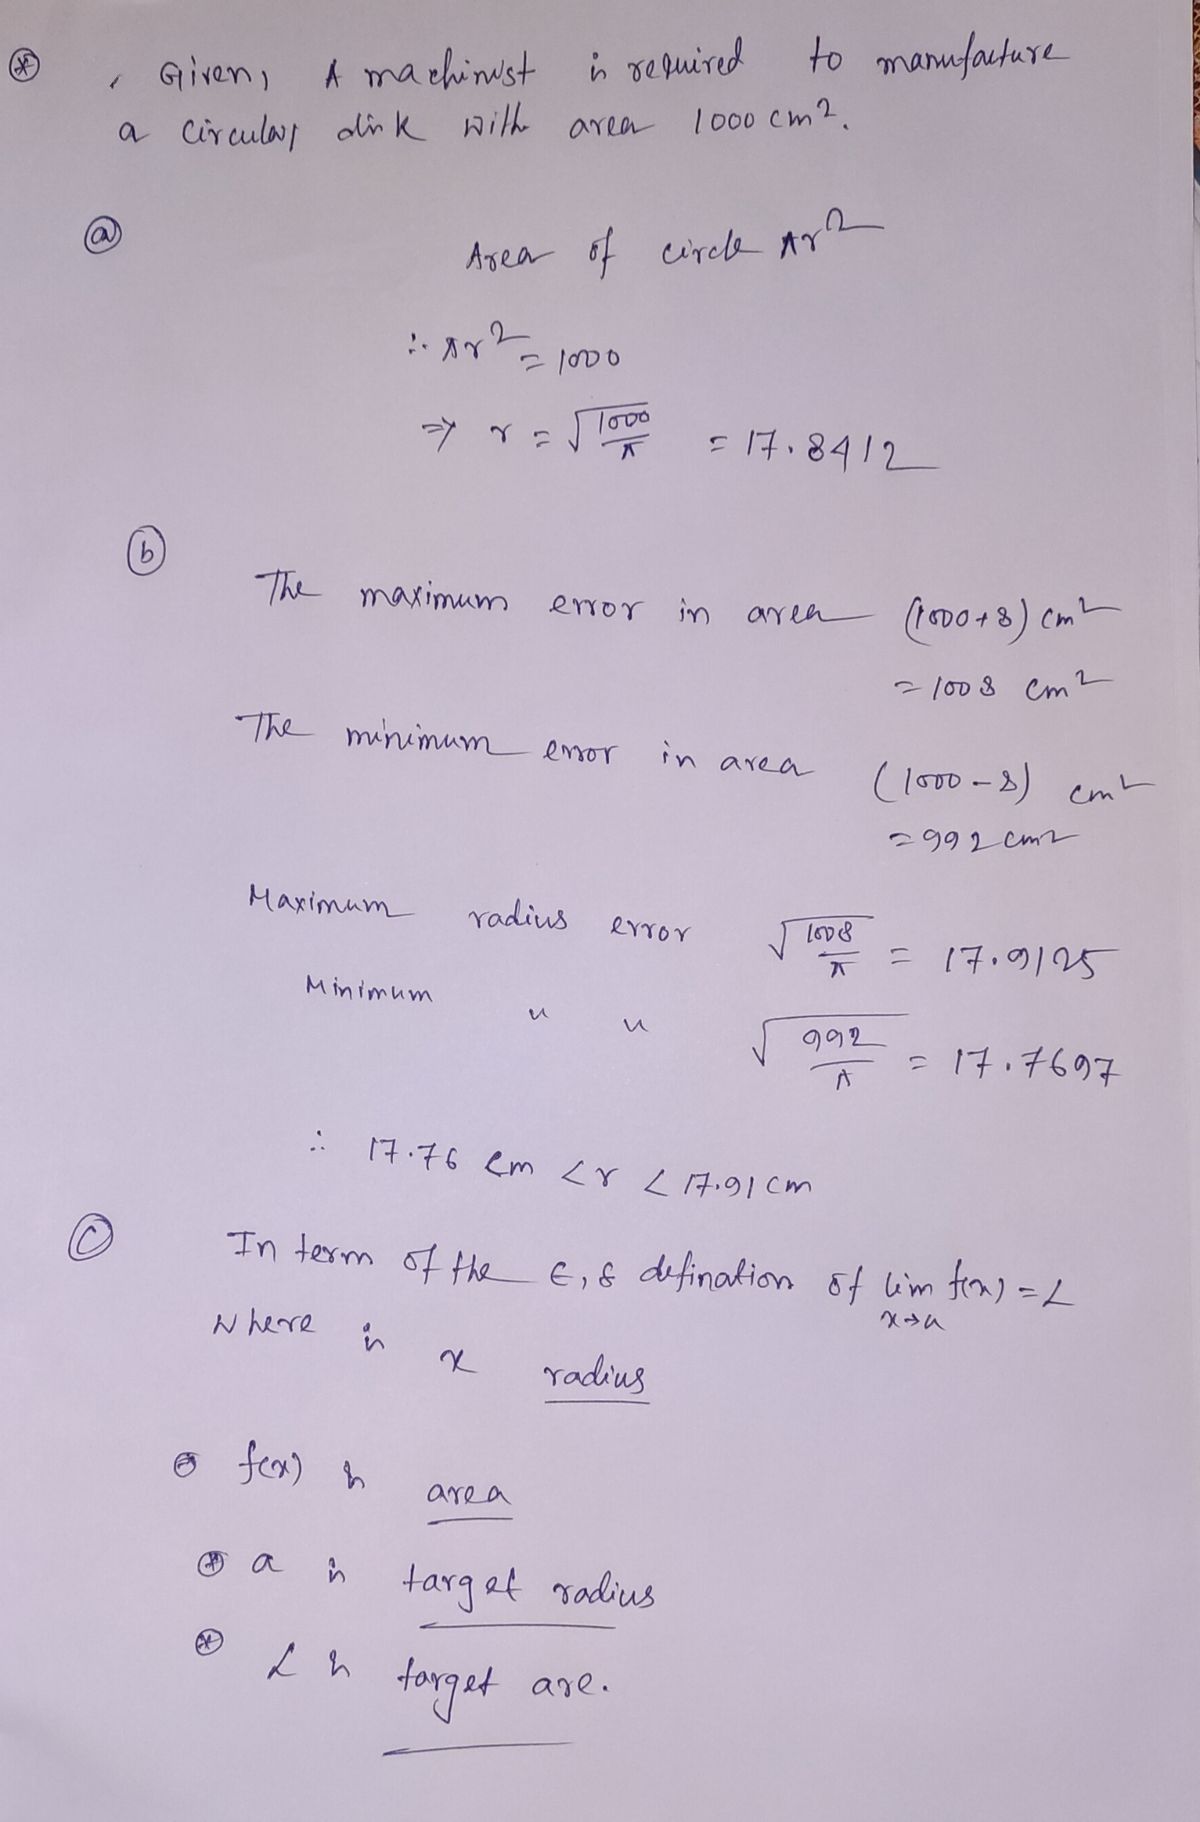 * , Given, A machinist is required to manufacture
a circular disk with area 1000 cm².
(a)
Area of circle πr²
∴ πr² = 1000
⇒ r = √(1000/π) = 17.8412
(b)
The maximum error in area (1000+8) cm²
= 1008 cm²
The minimum error in area (1000-8) cm²
= 992 cm²
Maximum radius error √(1008/π) = 17.9125
Minimum " " √(992/π) = 17.7697
∴ 17.76 cm < r < 17.91 cm
(c)
In term of the ε, δ defination of lim f(x) = L
x→a
Where is x radius
* f(x) is area
* a is target radius
* L is target are.